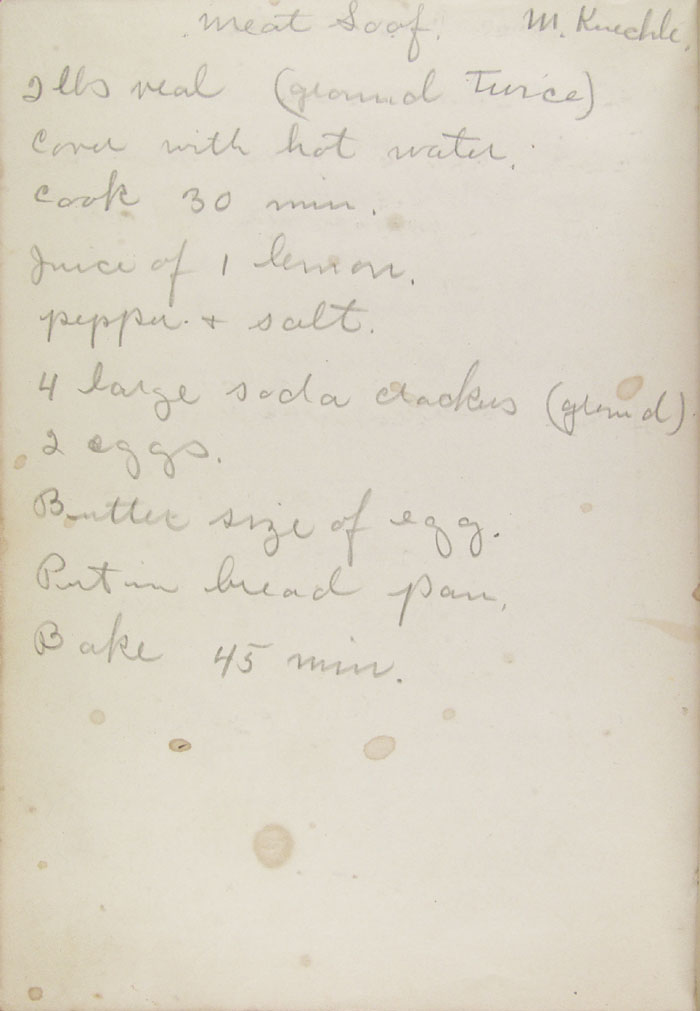 Meat Loaf. M. Kuechle.
2 lbs veal (ground Twice)
Cover with hot water.
Cook 30 min.
Juice of 1 lemon.
pepper + salt.
4 large soda crackers (ground)
2 eggs.
Butter size of egg.
Put in bread pan.
Bake 45 min.